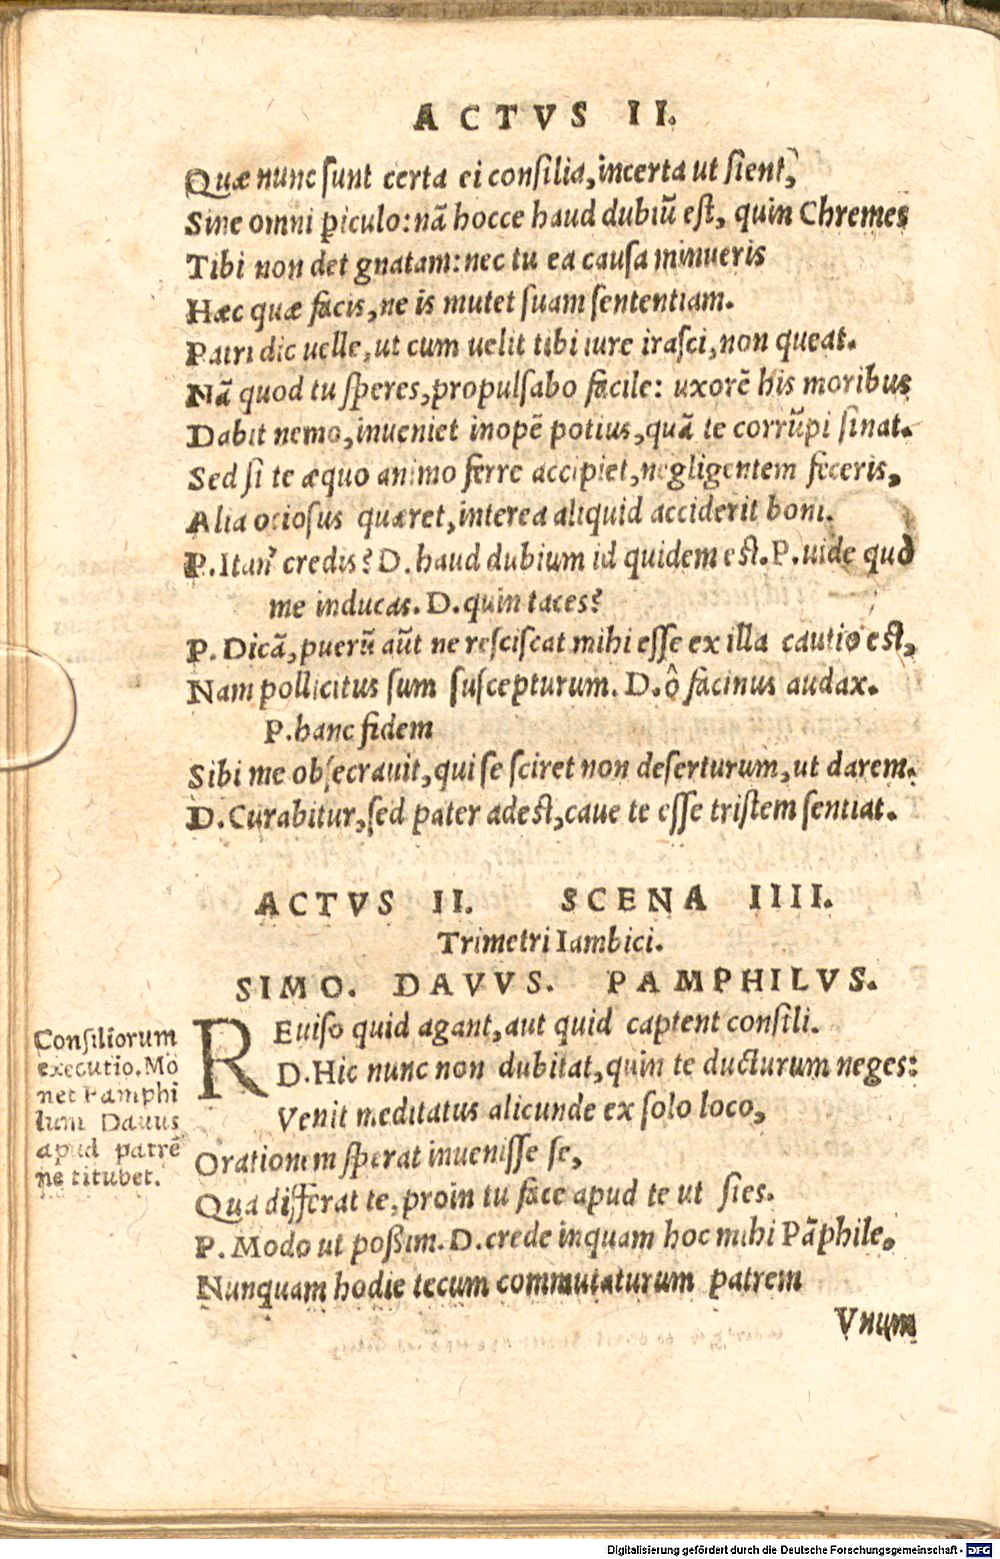 ACTVS II.
Quæ nunc sunt certa ei consilia, incerta ut sient,
Sine omni piculo: nã hocce haud dubiũ est, quin Chremes
Tibi non det gnatam: nec tu ea causa minueris
Hæc quæ facis, ne is mutet suam sententiam.
Patri dic uelle, ut cum uelit tibi iure irasci, non queat.
Nã quod tu speres, propulsabo facile: uxorẽ his moribus
Dabit nemo, inueniet inopẽ potius, quã te corrũpi sinat.
Sed si te æquo animo ferre accipiet, negligentem feceris,
Alia ociosus quæret, interea aliquid acciderit boni.
P. Itan' credis? D. haud dubium id quidem est. P. uide quo
me inducas. D. quin taces?
P. Dicã, puerũ aũt ne resciscat mihi esse ex illa cautio est,
Nam pollicitus sum suscepturum. D. ô facinus audax.
P. hanc fidem
Sibi me obsecrauit, qui se sciret non deserturum, ut darem.
D. Curabitur, sed pater adest, caue te esse tristem sentiat.
ACTVS II. SCENA IIII.
Trimetri Iambici.
SIMO. DAVVS. PAMPHILVS.
REuiso quid agant, aut quid captent consili.
D. Hic nunc non dubitat, quin te ducturum neges:
Venit meditatus alicunde ex solo loco,
Orationem sperat inuenisse se,
Qua differat te, proin tu face apud te ut sies.
P. Modo ut poßim. D. crede inquam hoc mihi Pãphile,
Nunquam hodie tecum commutaturum patrem
Vnum
Consiliorum
executio. Mo
net Pamphi
lum Dauus
apud patrẽ
ne titubet.
Digitalisierung gefördert durch die Deutsche Forschungsgemeinschaft - DFG